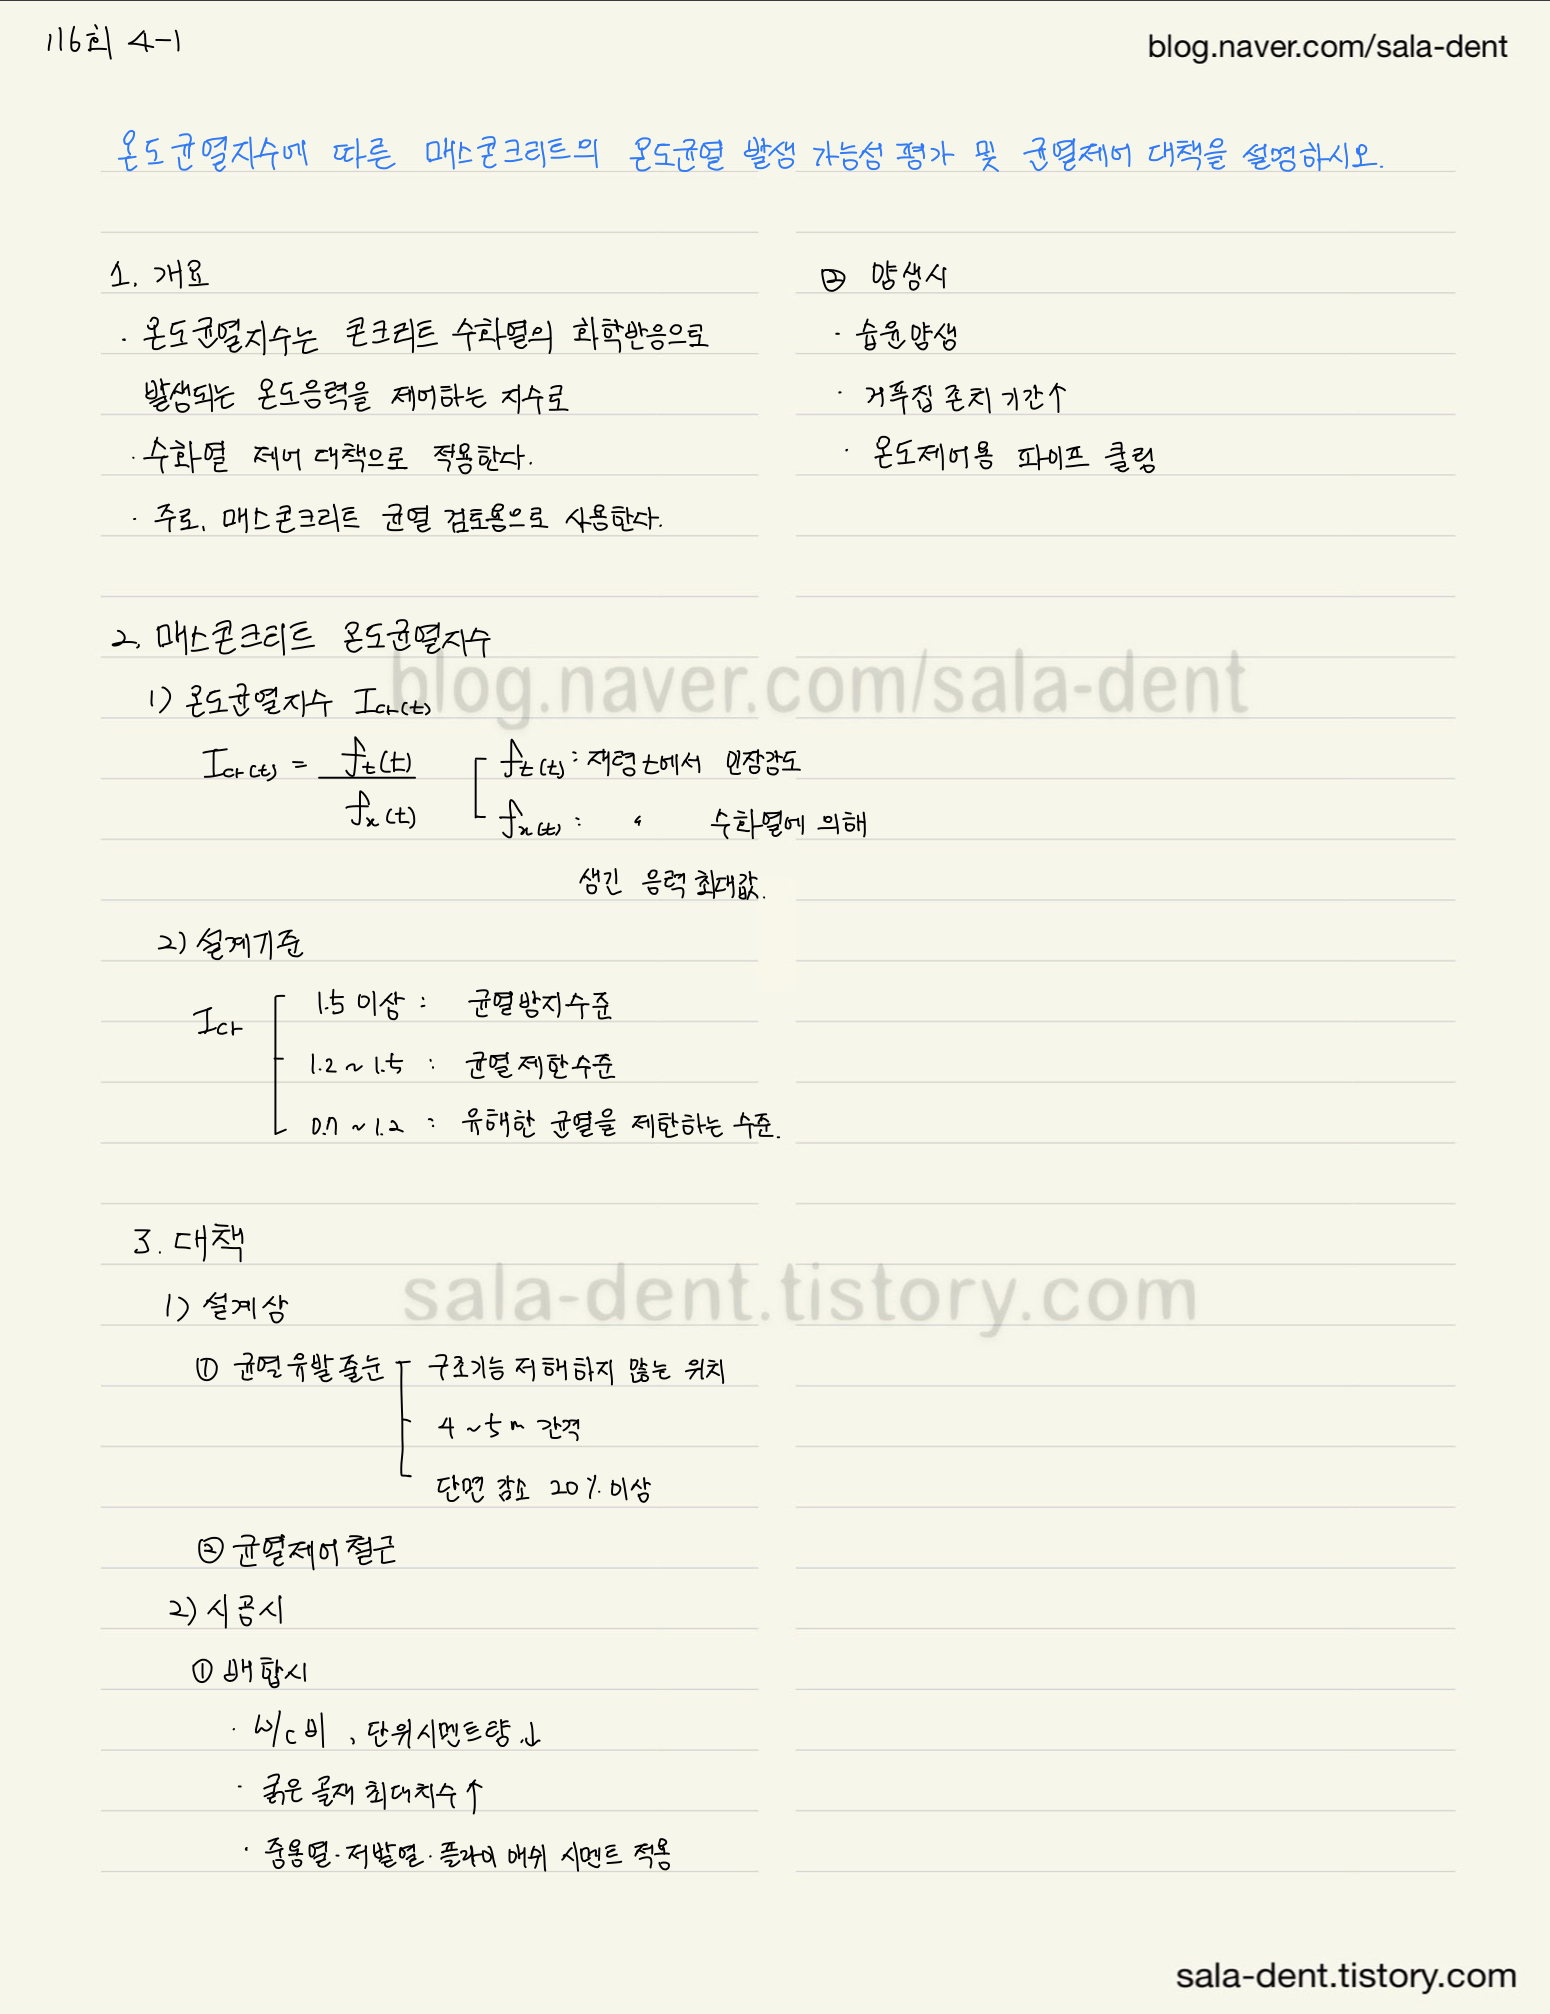 116회 4-1
blog.naver.com/sala-dent
온도균열지수에 따른 매스콘크리트의 온도균열 발생 가능성 평가 및 균열제어 대책을 설명하시오.
1. 개요
· 온도균열지수는 콘크리트 수화열의 화학반응으로
발생되는 온도응력을 제어하는 지수로
· 수화열 제어 대책으로 적용한다.
· 주로, 매스콘크리트 균열 검토용으로 사용한다.
2. 매스콘크리트 온도균열지수
1) 온도균열지수 Icr(t)
Icr(t) = ft(t) / fx(t)
ft(t) : 재령 t에서 인장강도
fx(t) : 〃 수화열에 의해
생긴 응력 최대값.
2) 설계기준
Icr
1.5 이상 : 균열방지수준
1.2 ~ 1.5 : 균열제한수준
0.7 ~ 1.2 : 유해한 균열을 제한하는 수준.
3. 대책
1) 설계상
① 균열유발줄눈
구조기능 저해하지 않는 위치
4 ~ 5m 간격
단면 감소 20% 이상
② 균열제어철근
2) 시공시
① 배합시
· W/C비, 단위시멘트량↓
· 굵은 골재 최대치수↑
· 중용열·저발열·플라이 애쉬 시멘트 적용
② 양생시
· 습윤양생
· 거푸집 존치기간↑
· 온도제어용 파이프 쿨링
blog.naver.com/sala-dent
sala-dent.tistory.com
sala-dent.tistory.com